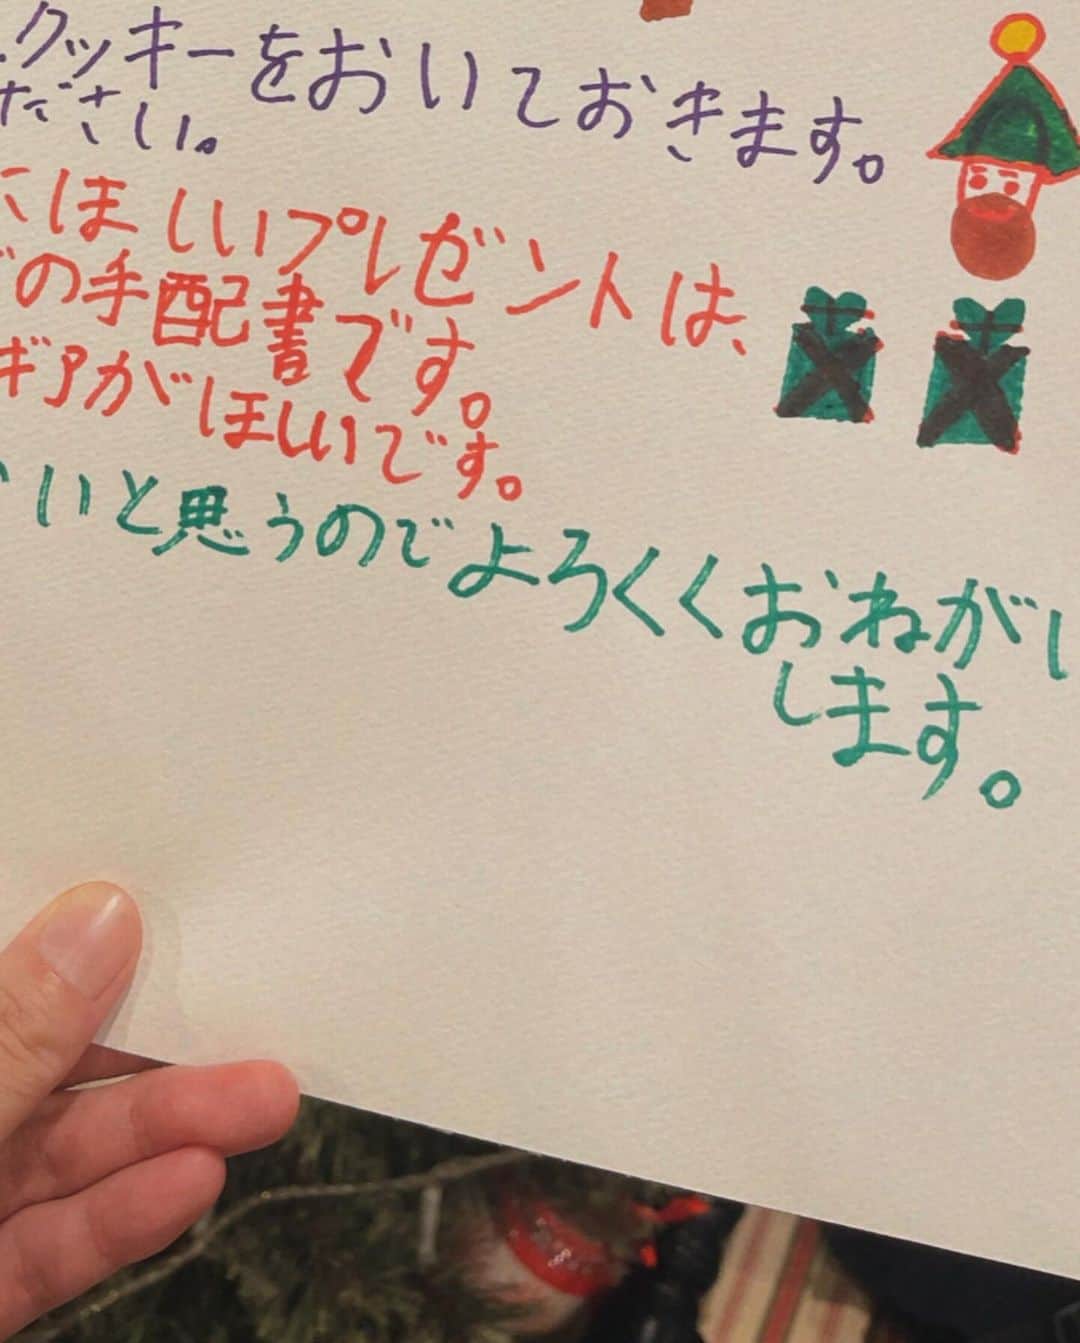 クッキーをおいておきます。
ださい。
にほしいプレゼントは、
の手配書です。
ギアがほしいです。
いと思うのでよろくくおねがい
します。